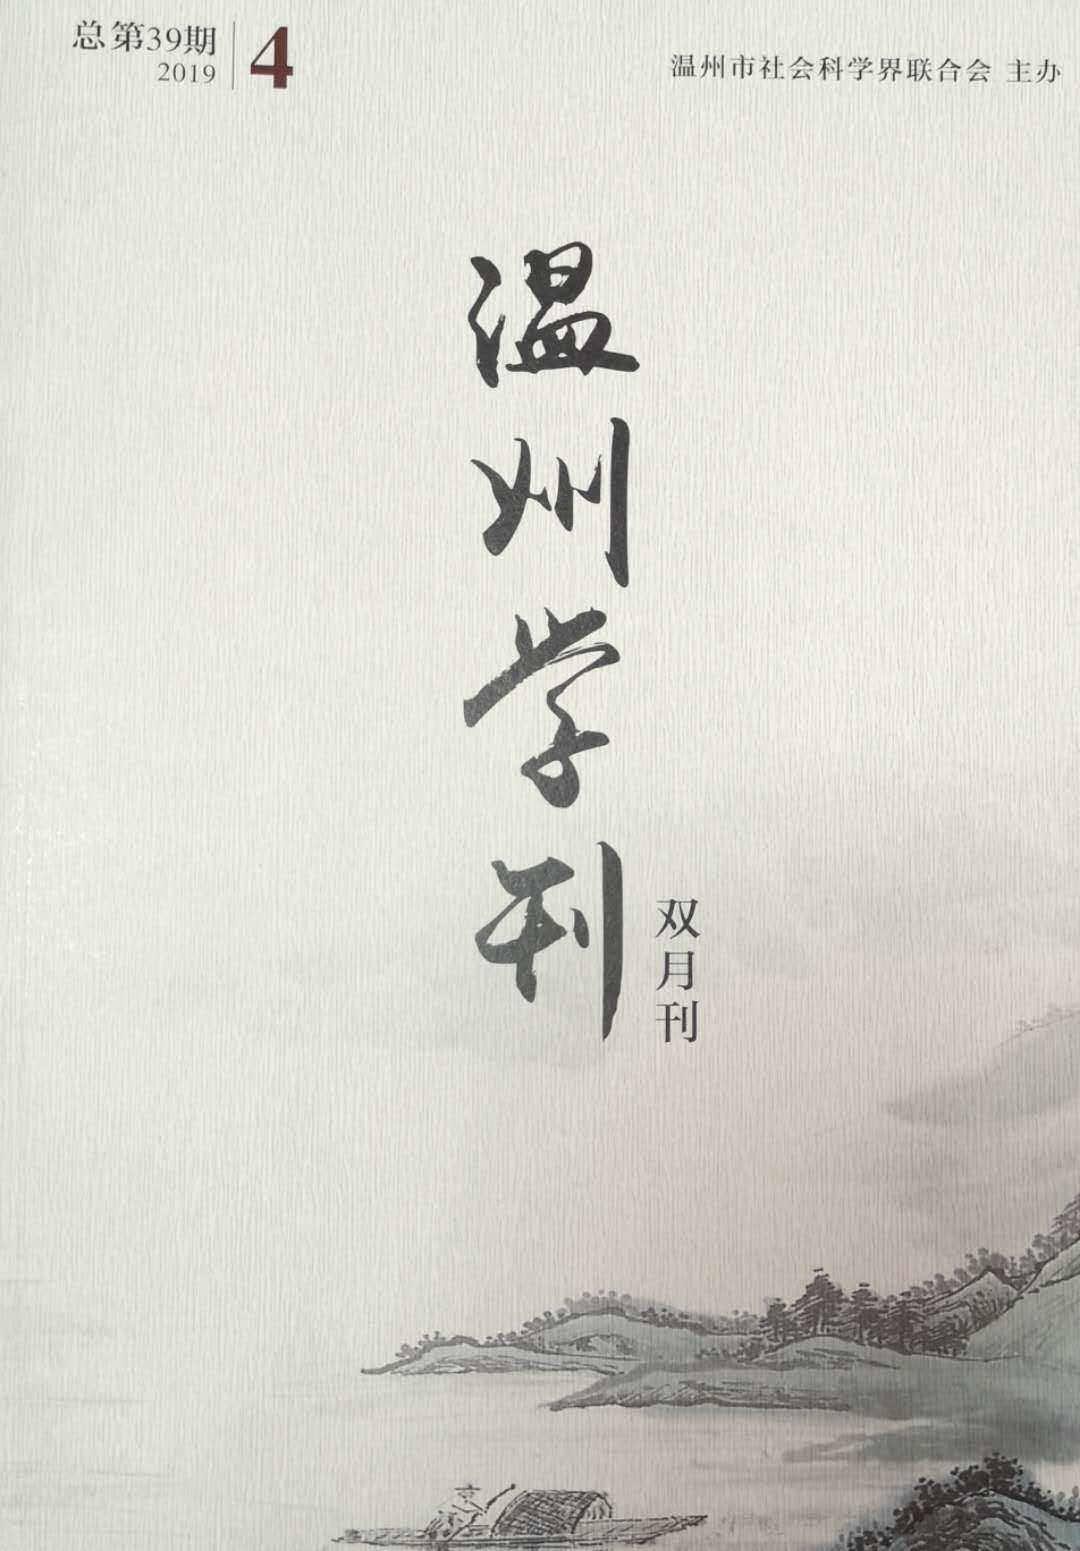 总第39期
2019
4
温州市社会科学界联合会 主办
温州学刊
双月刊